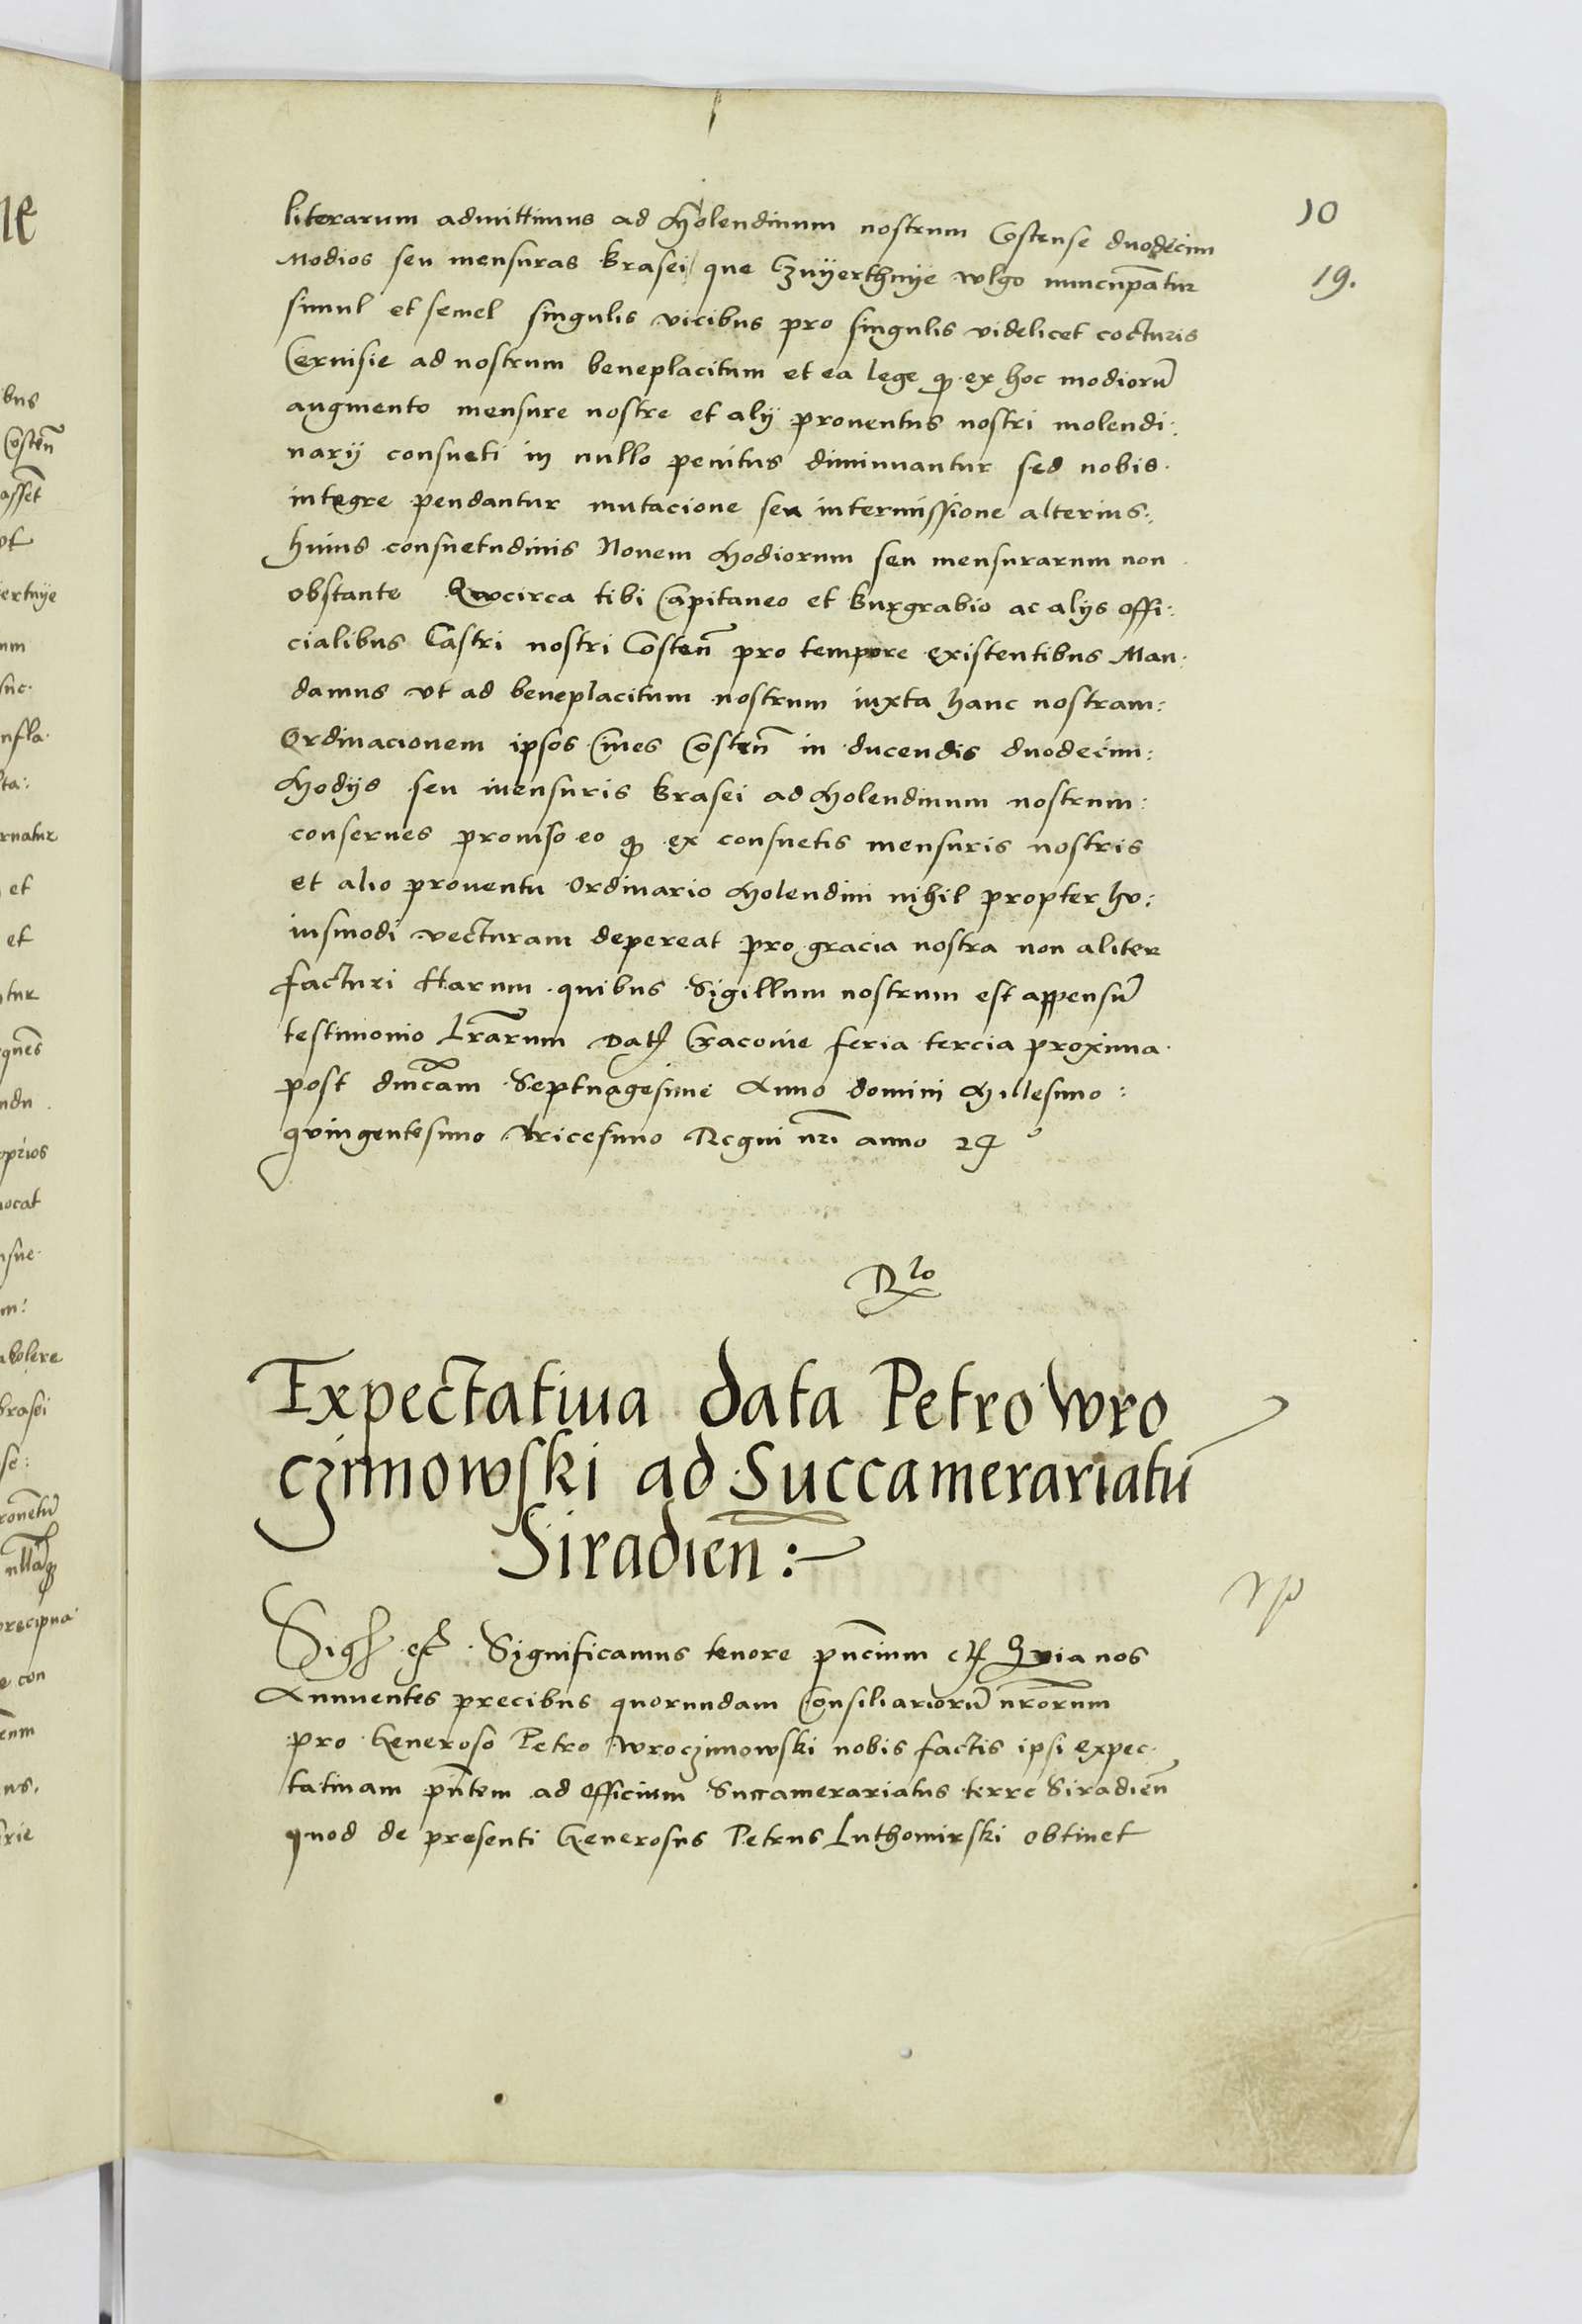 10
19.
literarum admittimus ad Molendinum nostrum Costense duodecim
Modios seu mensuras brasei que Czwyerthnye wlgo nuncupātur
simul et semel singulis vicibus pro singulis videlicet cocturis
Ceruisie ad nostrum beneplacitum et ea lege ꝙ ex hoc modiorū
augmento mensure nostre et alÿ prouentus nostri molendi:
narÿ consueti in nullo penitus diminuantur sed nobis
integre pendantur mutacione seu intermissione alterius:
huius consuetudinis Nouem Modiorum seu mensurarum non
obstante Qwocirca tibi Capitaneo et burgrabio ac alÿs offi:
cialibus Castri nostri Costeñ pro tempore existentibus Man:
damus vt ad beneplacitum nostrum iuxta hanc nostram:
Ordinacionem ipsos Ciues Costeñ in ducendis duodecim:
Modÿs seu mensuris brasei ad Molendinum nostrum:
conserues prouiso eo ꝙ ex consuetis mensuris nostris
et alio prouentu ordinario Molendini nihil propter hu:
iusmodi vecturam depereat pro gracia nostra non aliter
facturi Harum quibus Sigillum nostrum est appensū
testimonio Lrārum Datꝭ Cracouie feria tercia proxima
post dnīcam Septuagesime Anno domini Millesimo:
quingentesimo tricesimo Regni nrī anno 24°
Rlo
Expectatiua data Petro Wro
czimowski ad Succamerariatū
Siradieñ :
Sigꝭ etc Significamus tenore pn̄cium etc Quia nos
Annuentes precibus quorundam Consiliariorū nrōrum
pro Generoso Petro Wroczimowski nobis factis ipsi expec
tatiuam pn̄tem ad officium Succamerariatus terre Siradieñ
quod de presenti Generosus Petrus Luthomirski obtinet